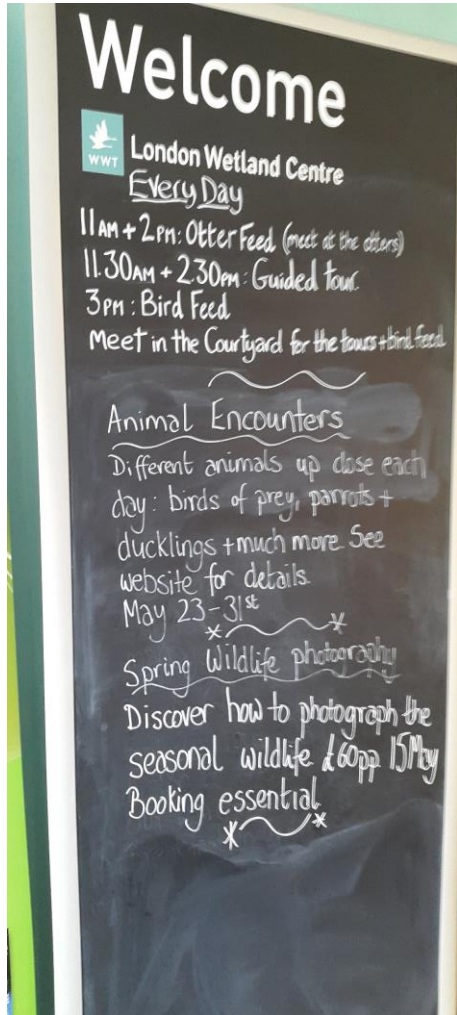 Welcome
WWT
London Wetland Centre
Every Day
11AM + 2PM: Otter Feed (meet at the otters)
11.30AM + 2.30PM: Guided tour.
3PM: Bird Feed
Meet in the Courtyard for the tours + bird feed
Animal Encounters
Different animals up close each
day: birds of prey, parrots +
ducklings + much more. See
website for details
May 23-31st
Spring Wildlife photography
Discover how to photograph the
seasonal wildlife £60pp 15 May
Booking essential